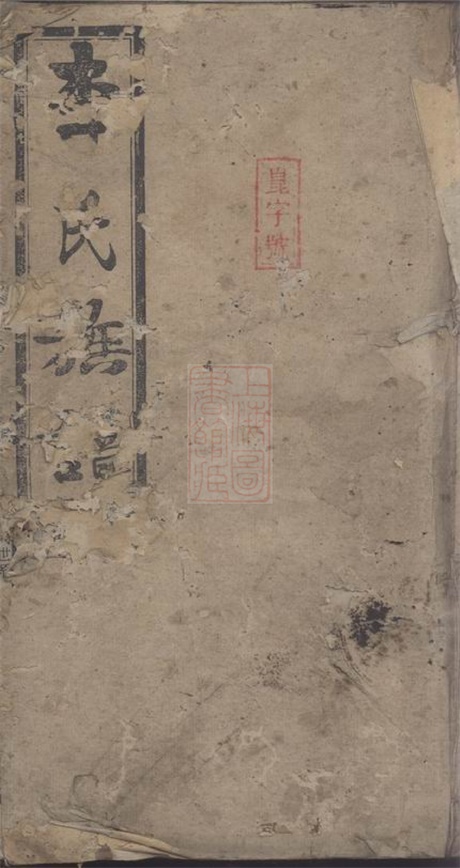 李氏族譜
皇字號
上海圖
書館藏